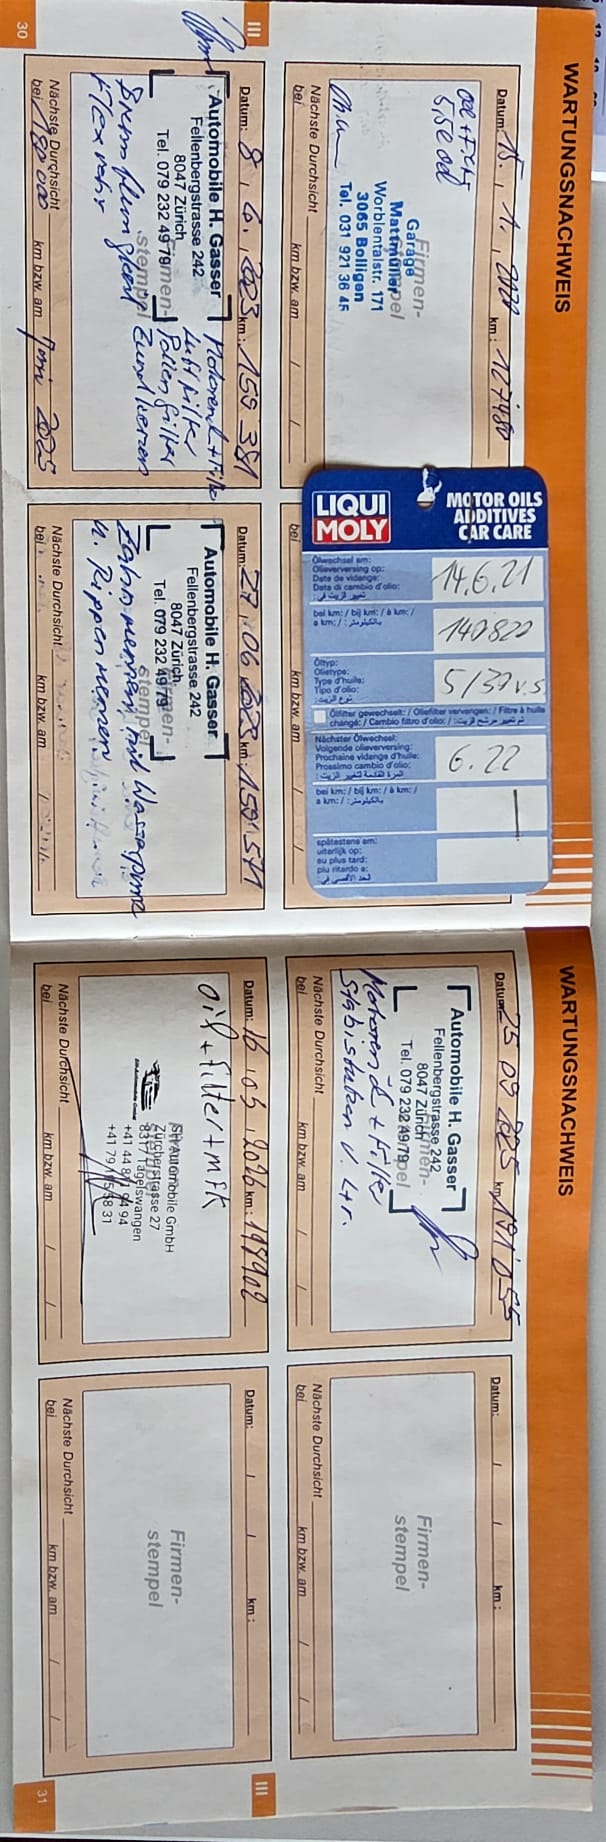 WARTUNGSNACHWEIS
Datum: 15. 1. 2020 km: 127480
oel + Filter
5,5l oel
Firmen-
stempel
Garage
Mattmüller
Worblentalstr. 171
3065 Bolligen
Tel. 031 921 36 45
Nächste Durchsicht
bei km bzw. am / /
LIQUI
MOLY
MOTOR OILS
ADDITIVES
CAR CARE
Ölwechsel am:
Olieverversing op:
Date de vidange:
Data di cambio d'olio:
تغيير الزيت في:
14.6.21
bei km: / bij km: / à km: /
a km: / بالكيلومتر:
140820
Öltyp:
Olietype:
Type d'huile:
Tipo d'olio:
نوع الزيت:
5/30 V.S
Ölfilter gewechselt: / Oliefilter vervangen: / Filtre à huile
changé: / Cambio filtro d'olio: / تم تغيير مرشح الزيت:
Nächster Ölwechsel:
Volgende olieverversing:
Prochaine vidange d'huile:
Prossimo cambio d'olio:
المرة القادمة لتغيير الزيت:
6.22
bei km: / bij km: / à km: /
a km: / بالكيلومتر:
spätestens am:
uiterlijk op:
au plus tard:
piu ritardo a:
الحد الأقصى في:
bei km bzw. am / /
III
Datum: 8. 6. 2023 km: 159 381
Automobile H. Gasser
Fellenbergstrasse 242
8047 Zürich
Tel. 079 232 49 79
Firmen-
stempel
Motorenöl + Filter
Luftfilter
Pollenfilter
Zündkerzen
Nächste Durchsicht
bei 180 000 km bzw. am Juni 2025
30
Datum: 27. 06 2023 km: 159 541
Automobile H. Gasser
Fellenbergstrasse 242
8047 Zürich
Tel. 079 232 49 79
Firmen-
stempel
Zahnriemen mit Wasserpumpe
u. Rippenriemen
Nächste Durchsicht
bei km bzw. am / /
WARTUNGSNACHWEIS
Datum: 25 09 2025 km: 191 055
Automobile H. Gasser
Fellenbergstrasse 242
8047 Zürich
Tel. 079 232 49 79
Firmen-
stempel
Motorenöl + Filter
Stabistreben v. L+r.
Nächste Durchsicht
bei km bzw. am / /
Datum: / / km:
Firmen-
stempel
Nächste Durchsicht
bei km bzw. am / /
Datum: 16. 03. 2026 km: 198902
oil + filter + MFK
Automobile GmbH
Zürcherstrasse 27
Nächste Durchsicht
bei km bzw. am / /
Datum: / / km:
Firmen-
stempel
Nächste Durchsicht
bei km bzw. am / /
III
31